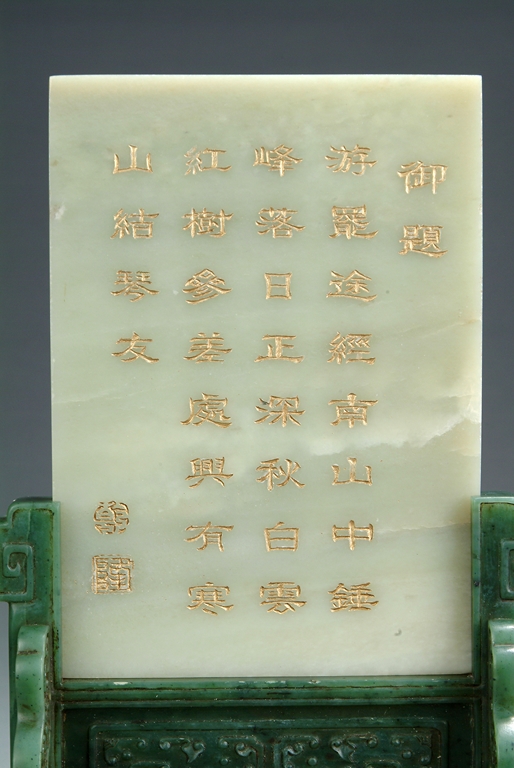 御題
游罷途經南山中錘
峰落日正深秋白雲
紅樹參差處興有寒
山結琴友
乾
隆